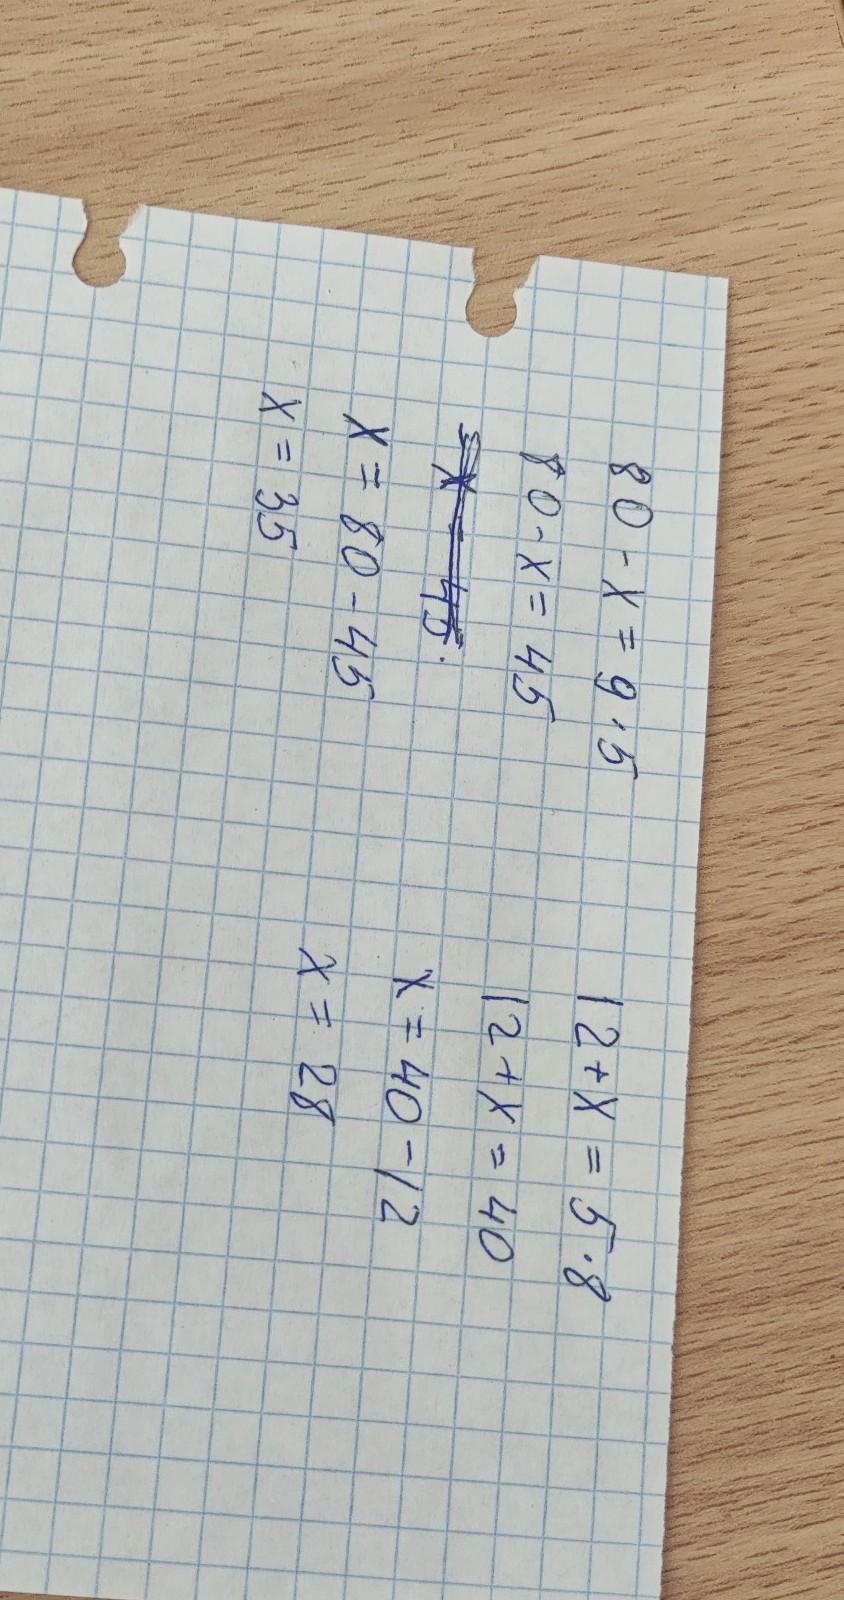 80 - x = 9 · 5
80 - x = 45
x = 80 - 45
x = 35
12 + x = 5 · 8
12 + x = 40
x = 40 - 12
x = 28